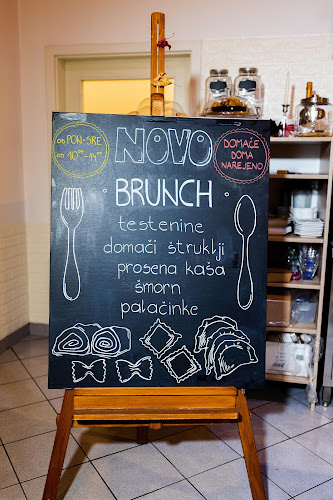 OD PON-SRE
OD 10⁰⁰-14⁰⁰
NOVO
DOMAČE
DOMA
NAREJENO
BRUNCH
testenine
domači štruklji
prosena kaša
šmorn
palačinke